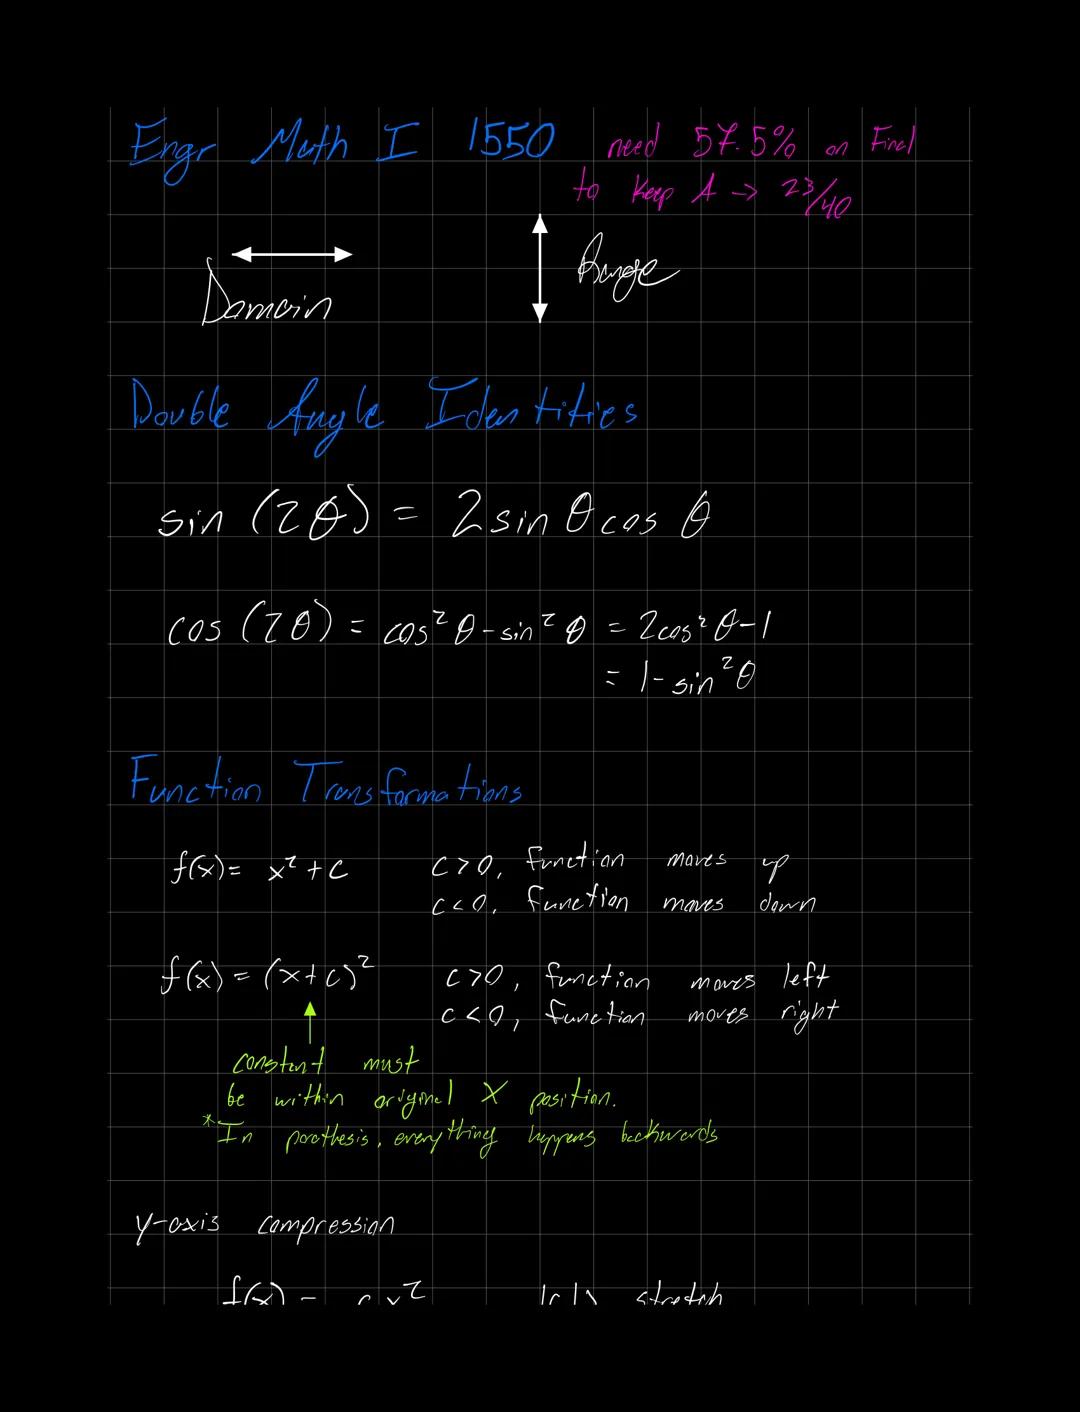 Engr Math I 1550
need 57.5% on Final
to keep A -> 23/40
Domain
Range
Double Angle Identities
sin (2θ) = 2sin θ cos θ
cos (2θ) = cos² θ - sin² θ = 2cos² θ - 1
= 1 - sin² θ
Function Transformations
f(x) = x² + c
c > 0, function moves up
c < 0, function moves down
f(x) = (x + c)²
c > 0, function moves left
c < 0, function moves right
constant must
be within original X position.
*In parothesis, everything happens backwards
y-axis compression
stretch